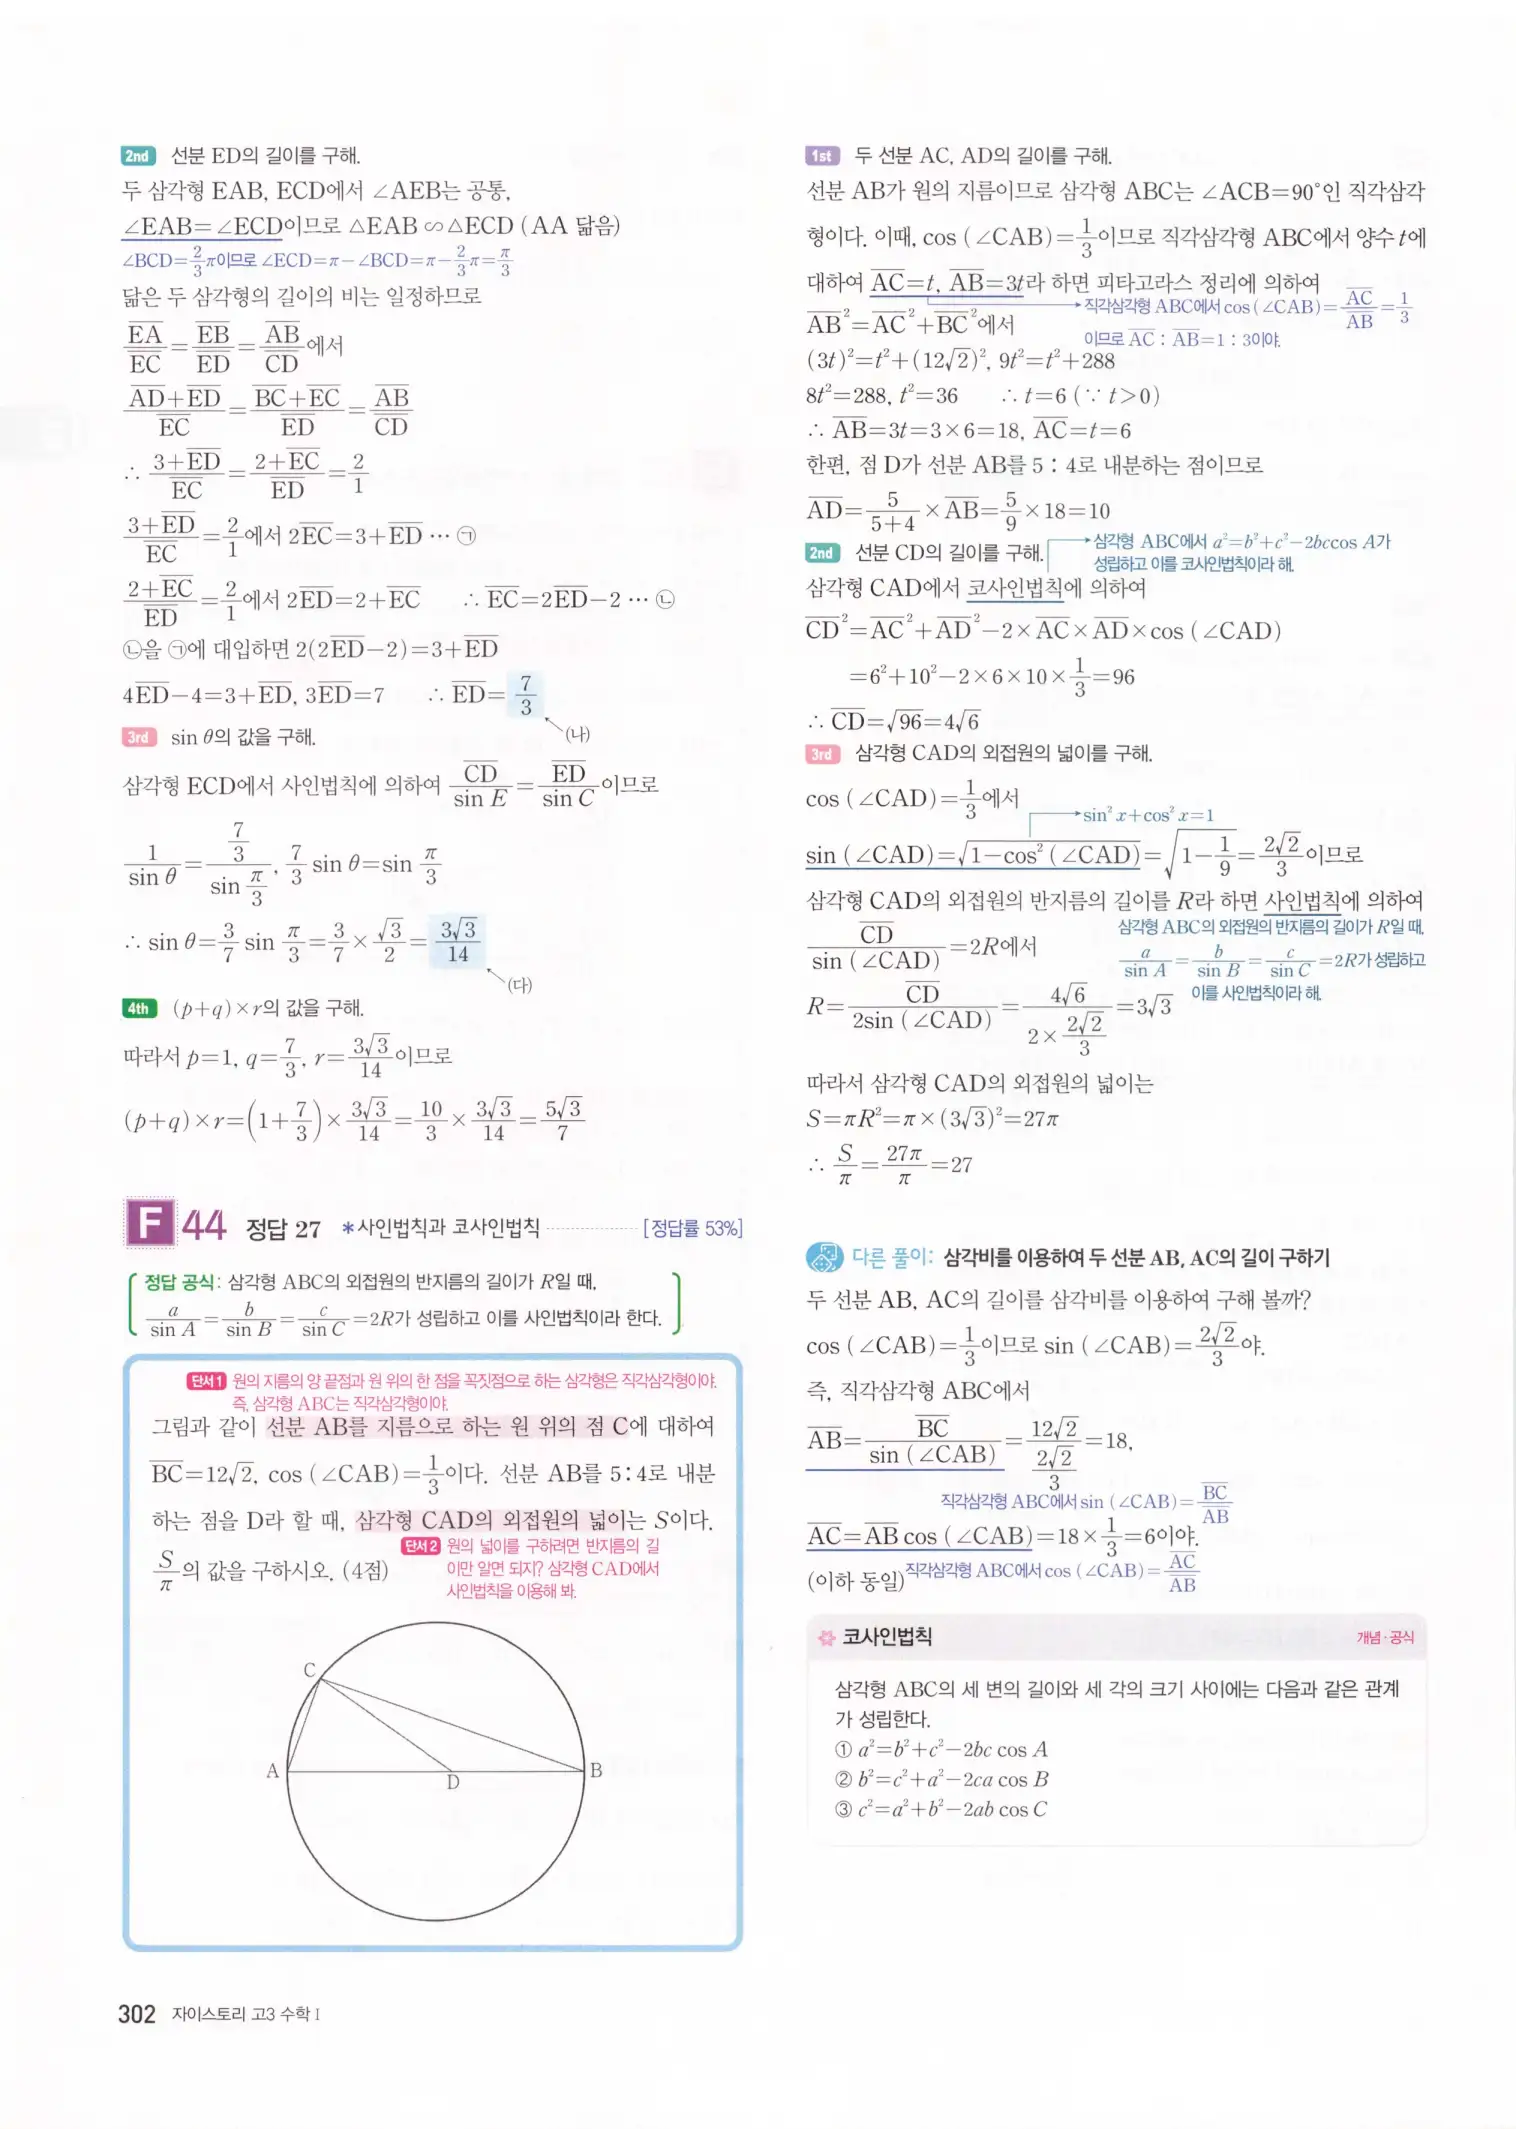 2nd 선분 ED의 길이를 구해.
두 삼각형 EAB, ECD에서 ∠AEB는 공통,
∠EAB=∠ECD이므로 △EAB∽△ECD (AA 닮음)
∠BCD=2/3π이므로 ∠ECD=π−∠BCD=π−2/3π=π/3
닮은 두 삼각형의 길이의 비는 일정하므로
EA/EC=EB/ED=AB/CD에서
(AD+ED)/EC=(BC+EC)/ED=AB/CD
∴ (3+ED)/EC=(2+EC)/ED=2/1
(3+ED)/EC=2/1에서 2EC=3+ED ⋯ ㉠
(2+EC)/ED=2/1에서 2ED=2+EC ∴ EC=2ED−2 ⋯ ㉡
㉡을 ㉠에 대입하면 2(2ED−2)=3+ED
4ED−4=3+ED, 3ED=7 ∴ ED=7/3
(나)
3rd sin θ의 값을 구해.
삼각형 ECD에서 사인법칙에 의하여 CD/sin E=ED/sin C이므로
1/sin θ=(7/3)/(sin π/3), 7/3 sin θ=sin π/3
∴ sin θ=3/7 sin π/3=3/7×√3/2=3√3/14
(다)
4th (p+q)×r의 값을 구해.
따라서 p=1, q=7/3, r=3√3/14이므로
(p+q)×r=(1+7/3)×3√3/14=10/3×3√3/14=5√3/7
F 44 정답 27 *사인법칙과 코사인법칙 ⋯⋯ [정답률 53%]
정답 공식: 삼각형 ABC의 외접원의 반지름의 길이가 R일 때,
a/sin A=b/sin B=c/sin C=2R가 성립하고 이를 사인법칙이라 한다.
단서1 원의 지름의 양 끝점과 원 위의 한 점을 꼭짓점으로 하는 삼각형은 직각삼각형이야.
즉, 삼각형 ABC는 직각삼각형이야.
그림과 같이 선분 AB를 지름으로 하는 원 위의 점 C에 대하여
BC=12√2, cos (∠CAB)=1/3이다. 선분 AB를 5:4로 내분
하는 점을 D라 할 때, 삼각형 CAD의 외접원의 넓이는 S이다.
S/π의 값을 구하시오. (4점)
단서2 원의 넓이를 구하려면 반지름의 길
이만 알면 되지? 삼각형 CAD에서
사인법칙을 이용해 봐.
C
A
D
B
302 자이스토리 고3 수학 I
1st 두 선분 AC, AD의 길이를 구해.
선분 AB가 원의 지름이므로 삼각형 ABC는 ∠ACB=90°인 직각삼각
형이다. 이때, cos (∠CAB)=1/3이므로 직각삼각형 ABC에서 양수 t에
대하여 AC=t, AB=3t라 하면 피타고라스 정리에 의하여
직각삼각형 ABC에서 cos (∠CAB)=AC/AB=1/3
이므로 AC : AB=1 : 3이야.
AB²=AC²+BC²에서
(3t)²=t²+(12√2)², 9t²=t²+288
8t²=288, t²=36 ∴ t=6 (∵ t>0)
∴ AB=3t=3×6=18, AC=t=6
한편, 점 D가 선분 AB를 5 : 4로 내분하는 점이므로
AD=5/(5+4)×AB=5/9×18=10
2nd 선분 CD의 길이를 구해.
삼각형 ABC에서 a²=b²+c²−2bccos A가
성립하고 이를 코사인법칙이라 해.
삼각형 CAD에서 코사인법칙에 의하여
CD²=AC²+AD²−2×AC×AD×cos (∠CAD)
=6²+10²−2×6×10×1/3=96
∴ CD=√96=4√6
3rd 삼각형 CAD의 외접원의 넓이를 구해.
cos (∠CAD)=1/3에서
sin² x+cos² x=1
sin (∠CAD)=√(1−cos² (∠CAD))=√(1−1/9)=2√2/3이므로
삼각형 CAD의 외접원의 반지름의 길이를 R라 하면 사인법칙에 의하여
CD/sin (∠CAD)=2R에서
삼각형 ABC의 외접원의 반지름의 길이가 R일 때,
a/sin A=b/sin B=c/sin C=2R가 성립하고
이를 사인법칙이라 해.
R=CD/(2sin (∠CAD))=4√6/(2×2√2/3)=3√3
따라서 삼각형 CAD의 외접원의 넓이는
S=πR²=π×(3√3)²=27π
∴ S/π=27π/π=27
다른 풀이: 삼각비를 이용하여 두 선분 AB, AC의 길이 구하기
두 선분 AB, AC의 길이를 삼각비를 이용하여 구해 볼까?
cos (∠CAB)=1/3이므로 sin (∠CAB)=2√2/3야.
즉, 직각삼각형 ABC에서
AB=BC/sin (∠CAB)=12√2/(2√2/3)=18,
직각삼각형 ABC에서 sin (∠CAB)=BC/AB
AC=AB cos (∠CAB)=18×1/3=6이야.
(이하 동일) 직각삼각형 ABC에서 cos (∠CAB)=AC/AB
코사인법칙 개념·공식
삼각형 ABC의 세 변의 길이와 세 각의 크기 사이에는 다음과 같은 관계
가 성립한다.
① a²=b²+c²−2bc cos A
② b²=c²+a²−2ca cos B
③ c²=a²+b²−2ab cos C